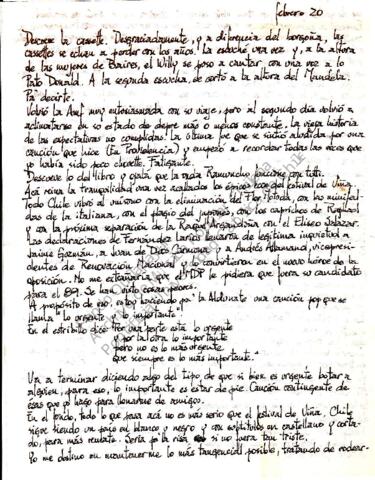 febrero 20
Descose la cassette. Desgraciadamente, y a diferencia del borgoña, las
cassettes se echan a perder con los años. La escuché una vez y, a la altura
de las mujeres de Buines, el Willy se puso a cantar con una voz a lo
Pato Donald. A la segunda escucha, se cortó a la altura del Mandela.
Pa' decirte.
Volvió la muy entusiasmada con su viaje, pero al segundo día volvió a
aclimatarse en su estado de depre más o menos constante. La vieja historia
de las expectativas no cumplidas. La última fue que se sintió aludida por una
canción que hice (En Trashumancia) y empezó a recordar todas las veces que
yo había sido poco Fatigante.
Descose lo del libro y ojalá que la radio Ramuncho funcione con tuti.
Acá reina la tranquilidad una vez acabados los épicos ecos del festival de Viña.
Todo Chile vibró al unísono con la eliminación del Flor Motuda, con las minifal-
das de la italiana, con el plagio del japonés, con los caprichos de Raphael
y con la próxima separación de la Raquel Argandoña con el Eliseo Salazar.
Las declaraciones de Fernández Larios llenaron de legítima inquietud a
Jaime Guzmán, a Juan de Dios Carmona y a Andrés Allamand, vicepresi-
dentes de Renovación Nacional y lo convirtieron en el nuevo héroe de la
oposición. No me extrañaría que el MDP le pidiera que fuera su candidato
para el 89. Se han visto cosas peores.
A propósito de eso, estoy haciendo pa' la Aldunate una canción pop que se
llama "lo urgente y lo importante".
En el estribillo dice: Por una parte está lo urgente
por la otra lo importante
pero no es lo más urgente
que siempre es lo más importante.
Va a terminar diciendo algo del tipo de que si bien es urgente botar a
alguien, para eso, lo importante es estar de pie. Canción contingente de
esas que yo hago para llenarme de amigos.
En el fondo, todo lo que pasa acá no es más serio que el festival de Viña. Chile
sigue siendo un país en blanco y negro y con subtítulos en castellano y corta-
do, para más remate. Sería pa' la risa si no fuera tan triste.
Yo me obstino en mantenerme lo más tangencial posible, tratando de rodear-